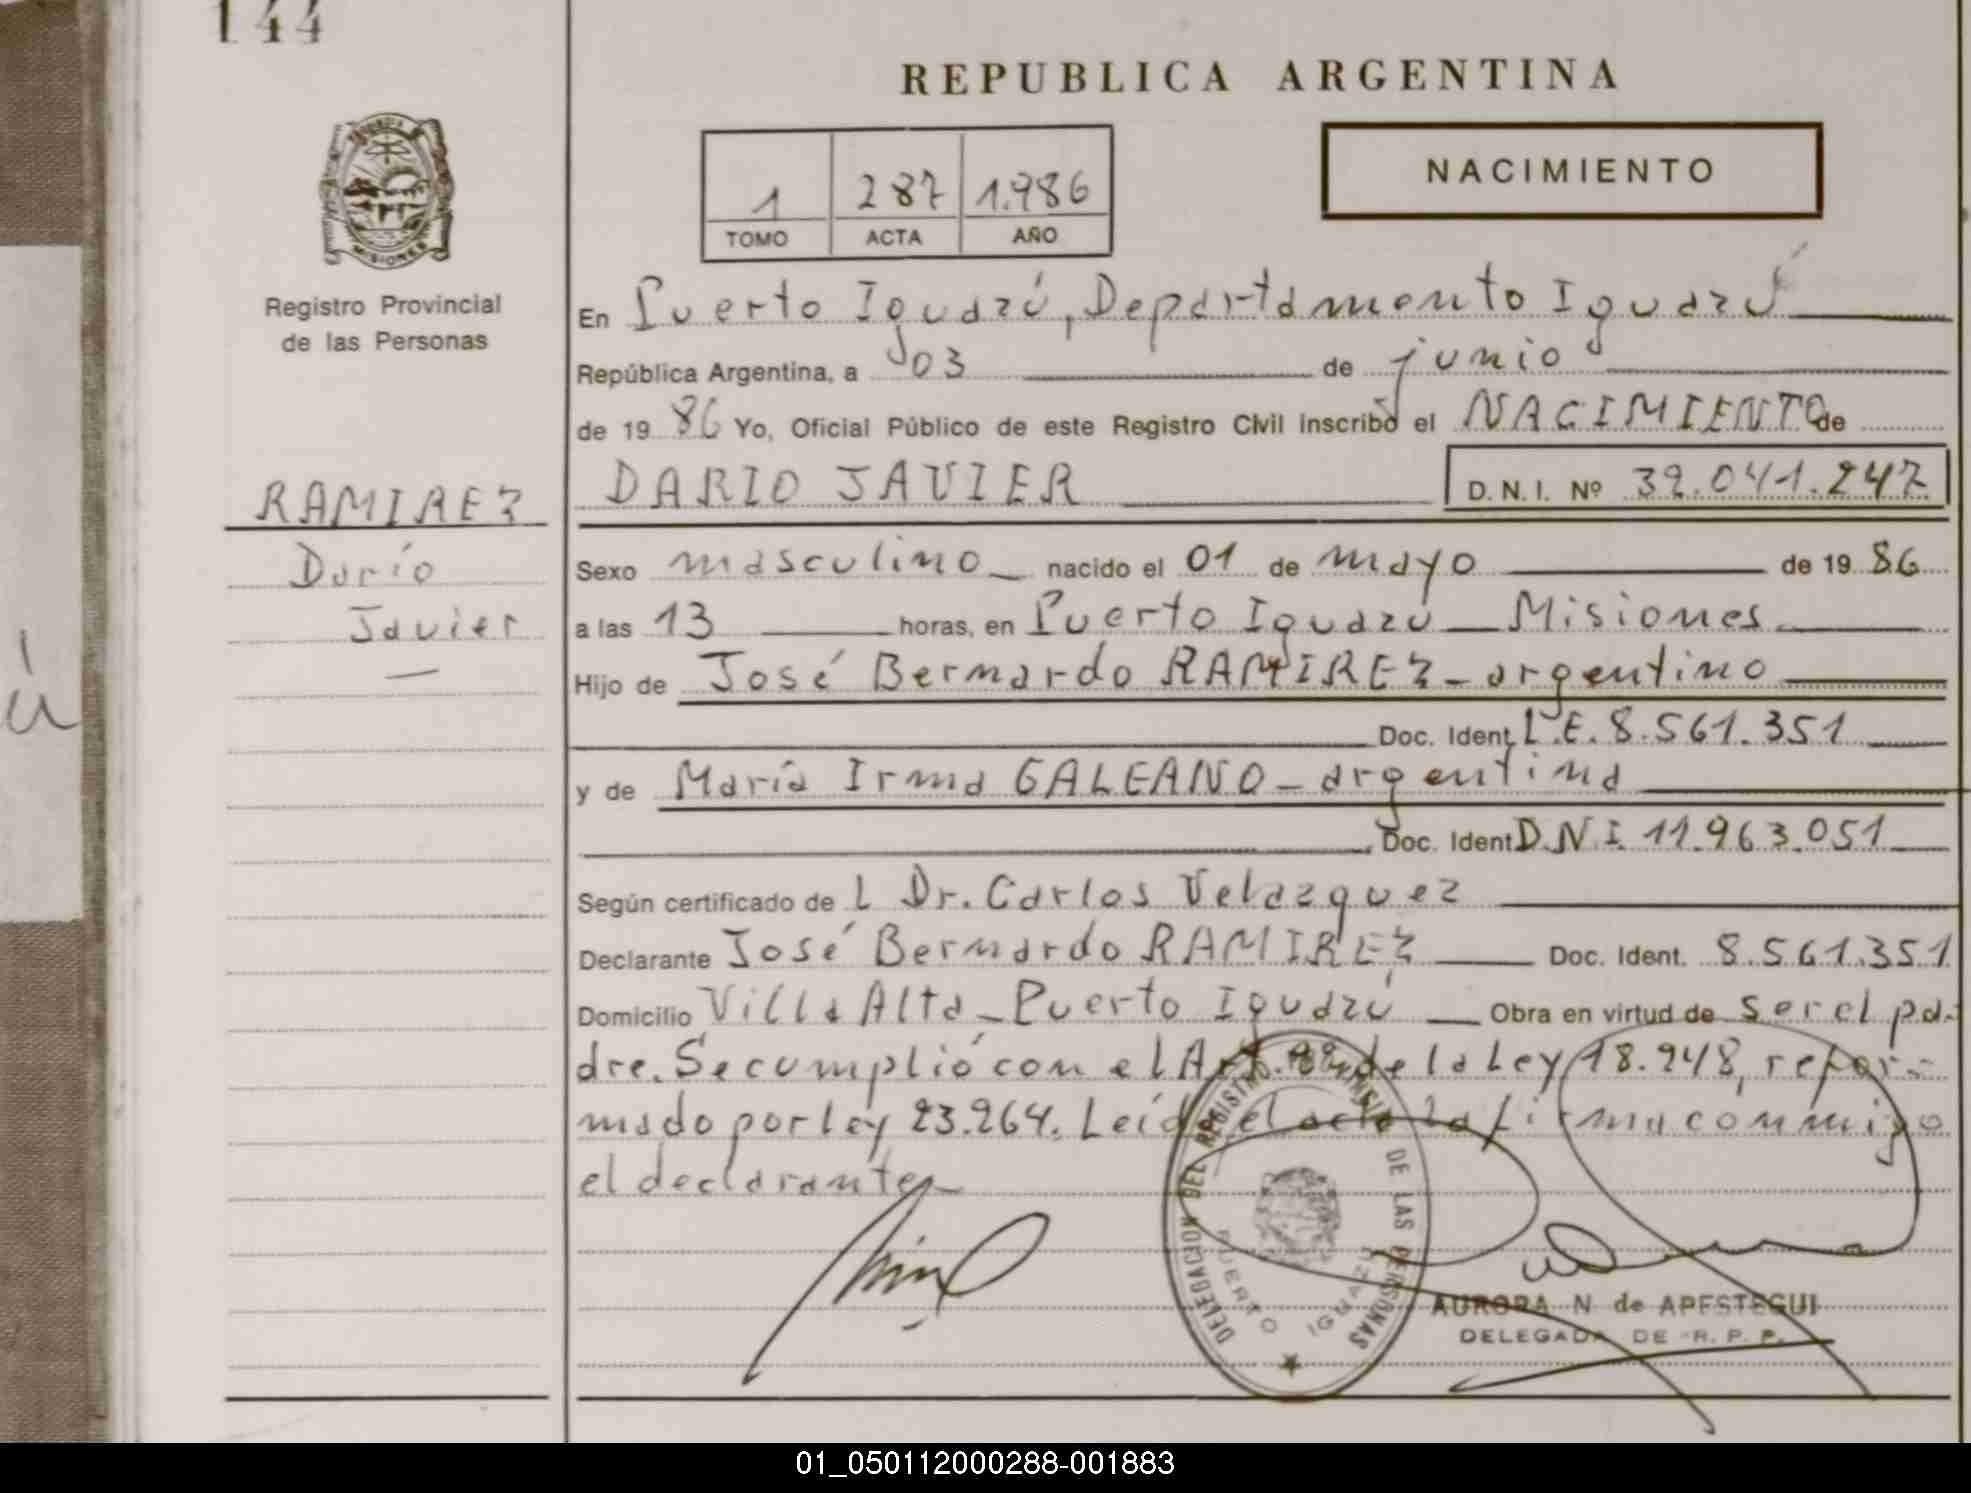 144
REPUBLICA ARGENTINA
NACIMIENTO
1 287 1.986
TOMO ACTA AÑO
MISIONES
Registro Provincial
de las Personas
En Puerto Iguazú, Departamento Iguazú
República Argentina, a 03 de junio
de 19 86 Yo, Oficial Público de este Registro Civil Inscribo el NACIMIENTO de
RAMIREZ
DARIO JAVIER D. N. I. Nº 32.041.247
Darío
Javier
Sexo masculino nacido el 01 de mayo de 19 86
a las 13 horas, en Puerto Iguazú _ Misiones
Hijo de José Bernardo RAMIREZ _ argentino
Doc. Ident. L.E. 8.561.351
y de María Irma GALEANO _ argentina
Doc. Ident D.N.I. 11.963.051
Según certificado de L Dr. Carlos Velazquez
Declarante José Bernardo RAMIREZ Doc. Ident. 8.561.351
Domicilio Villa Alta _ Puerto Iguazú Obra en virtud de ser el pa-
dre. Se cumplió con el Art. de la Ley 18.248, refor-
mado por ley 23.264. Leída el acta la firma conmigo
el declarante
DELEGACION DEL REGISTRO PROVINCIAL DE LAS PERSONAS
PUERTO IGUAZU
AURORA N de APESTEGUI
DELEGADA DE R. P. P.
01_050112000288-001883